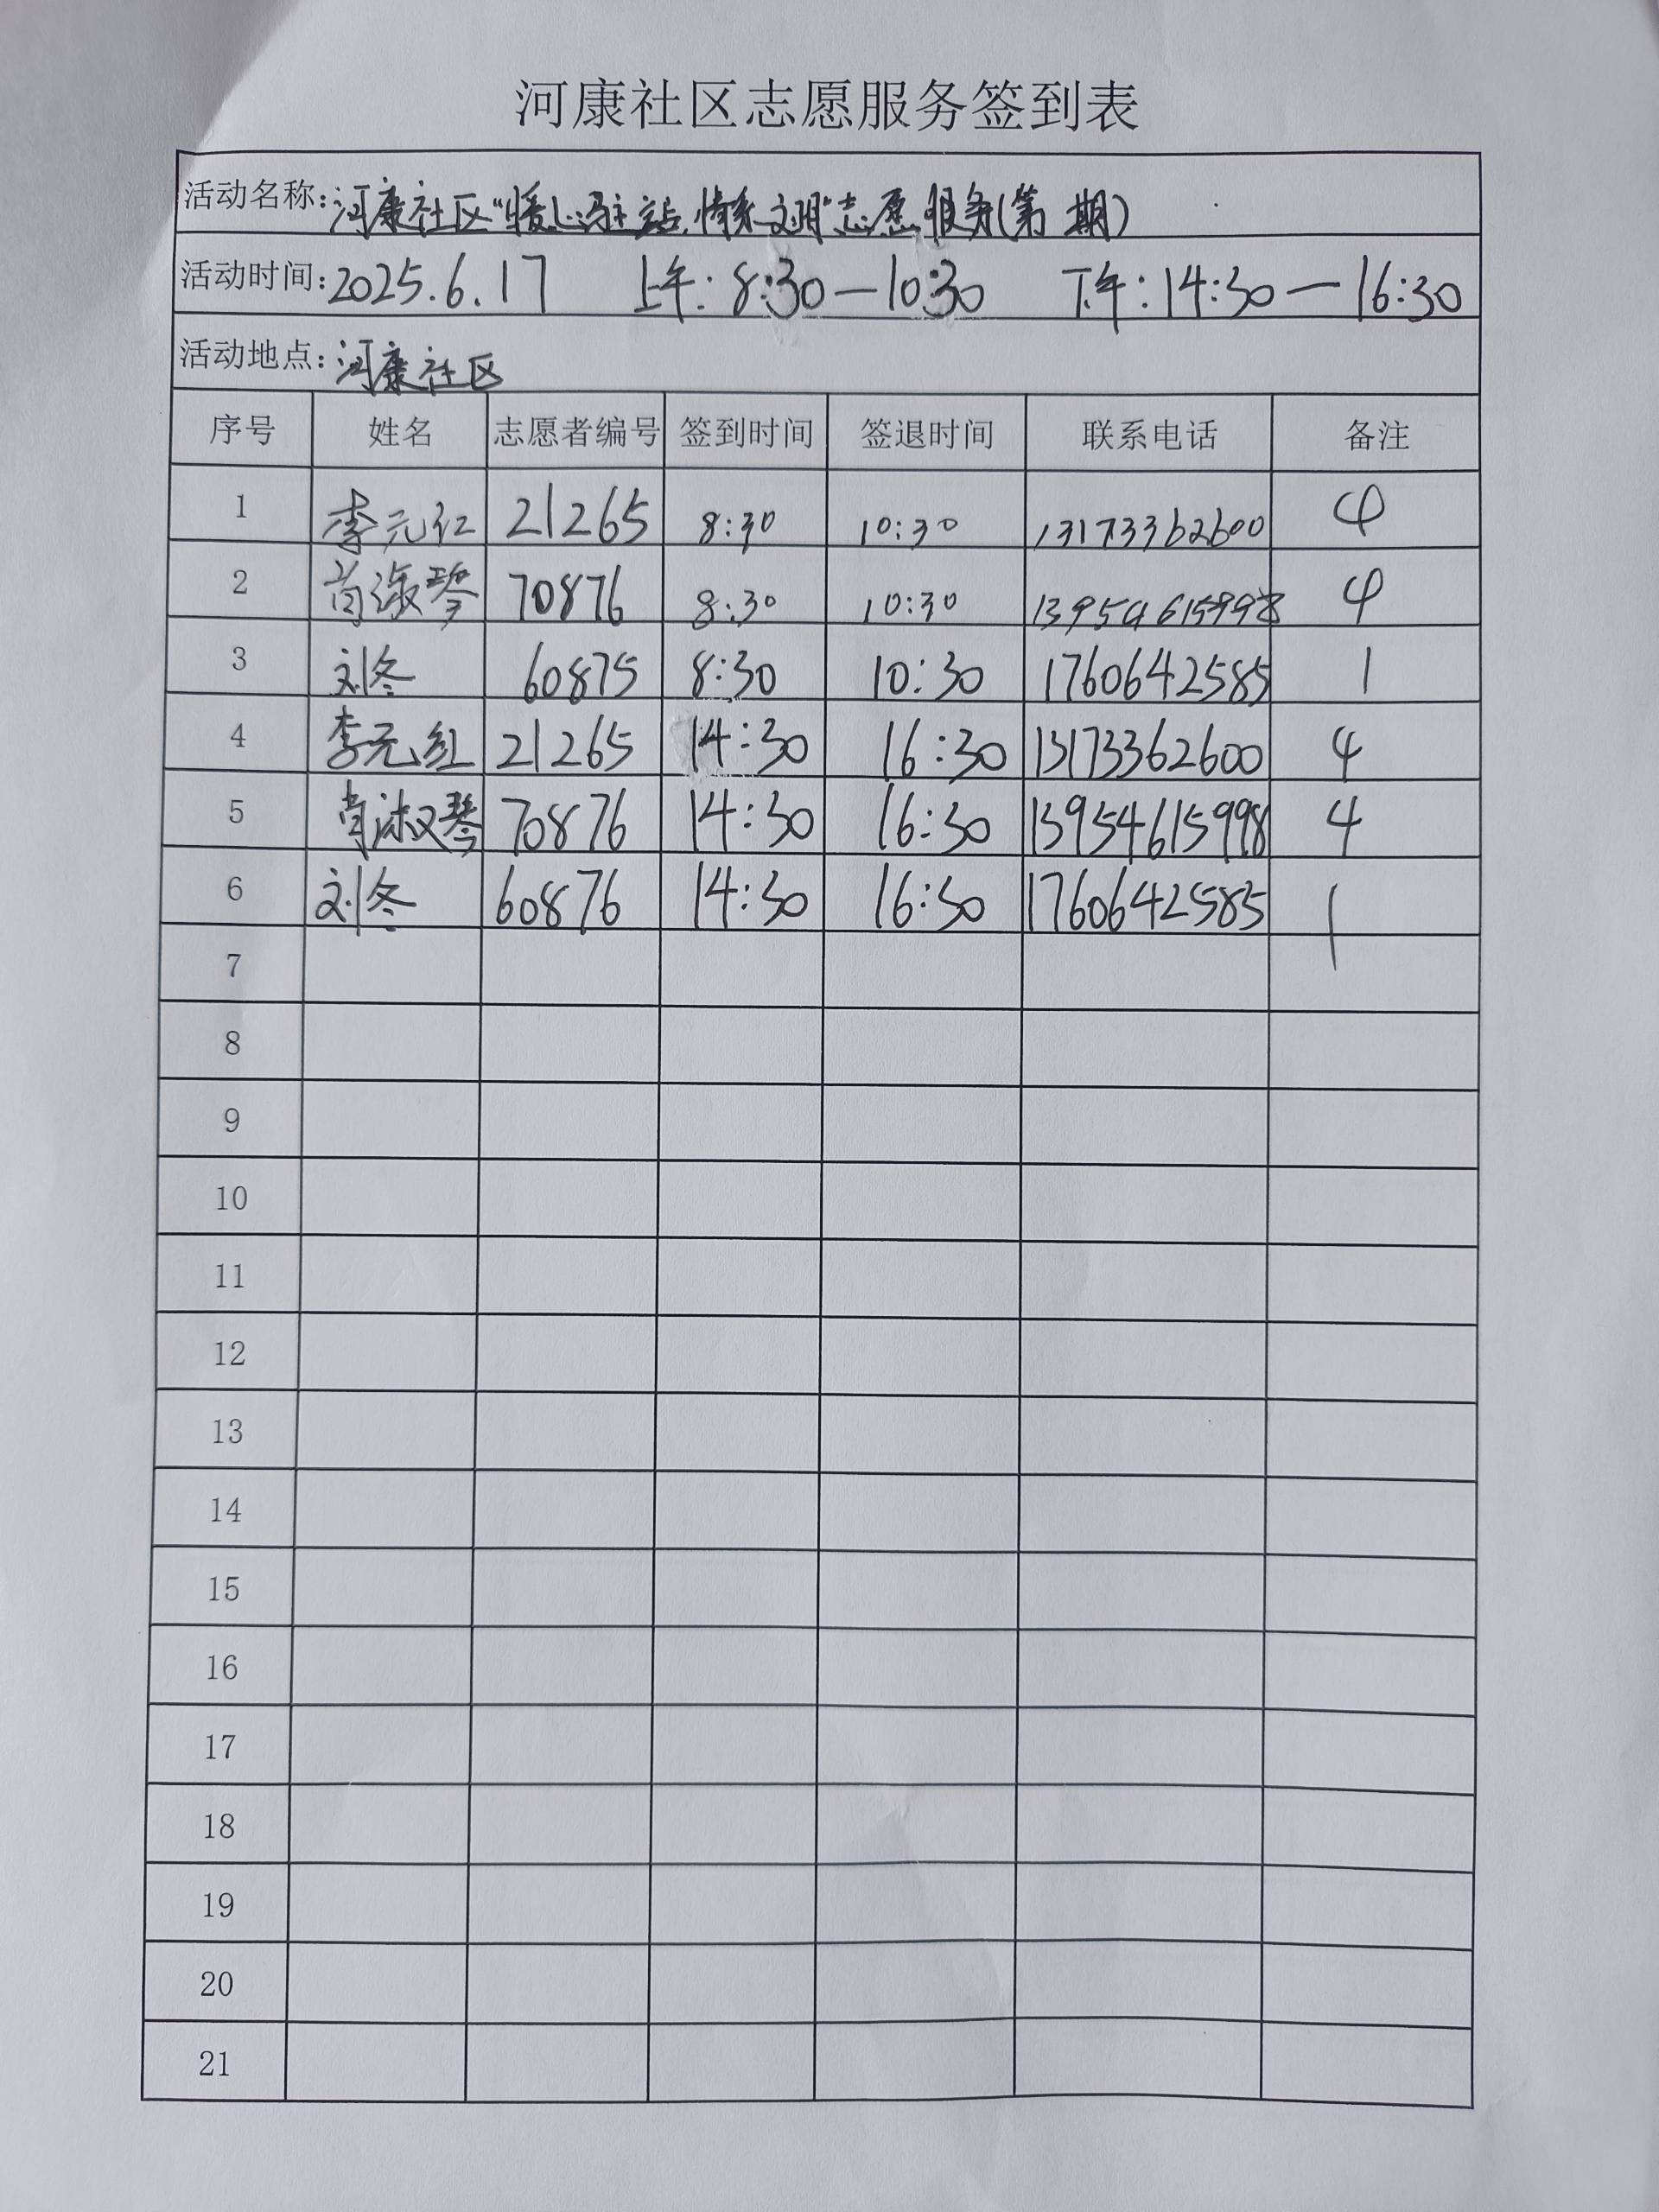 河康社区志愿服务签到表
活动名称:河康社区"暖心驻站,情系文明"志愿服务(第 期)
活动时间:2025.6.17 上午:8:30—10:30 下午:14:30—16:30
活动地点:河康社区
序号 姓名 志愿者编号 签到时间 签退时间 联系电话 备注
1 李元红 21265 8:30 10:30 13173362600 4
2 肖淑琴 70876 8:30 10:30 13954615998 4
3 刘冬 60875 8:30 10:30 1760642585 1
4 李元红 21265 14:30 16:30 13173362600 4
5 肖淑琴 70876 14:30 16:30 13954615998 4
6 刘冬 60876 14:30 16:30 1760642585 1
7
8
9
10
11
12
13
14
15
16
17
18
19
20
21